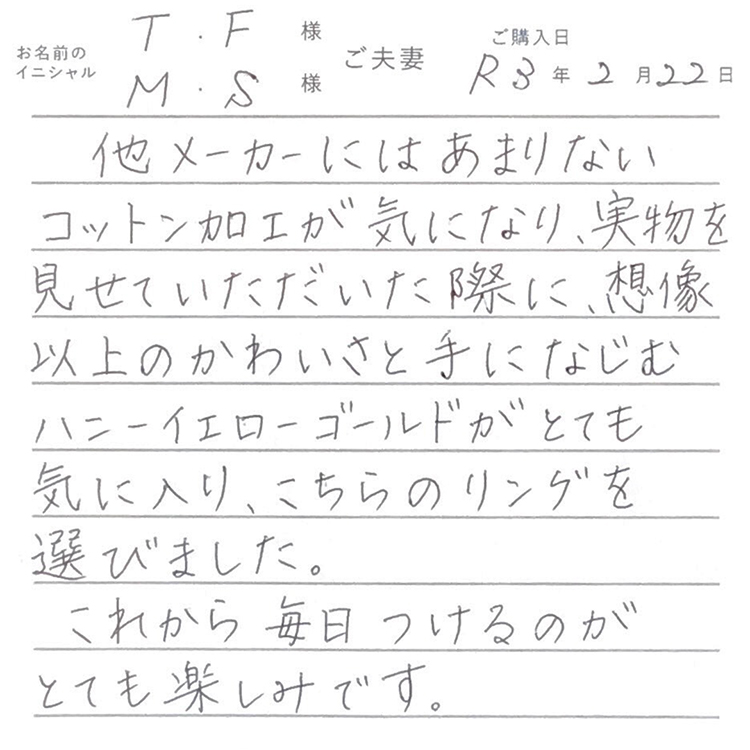 お名前の
イニシャル
T.F 様
M.S 様
ご夫妻
ご購入日
R3年2月22日
他メーカーにはあまりない
コットン加工が気になり、実物を
見せていただいた際に、想像
以上のかわいさと手になじむ
ハニーイエローゴールドがとても
気に入り、こちらのリングを
選びました。
これから毎日つけるのが
とても楽しみです。